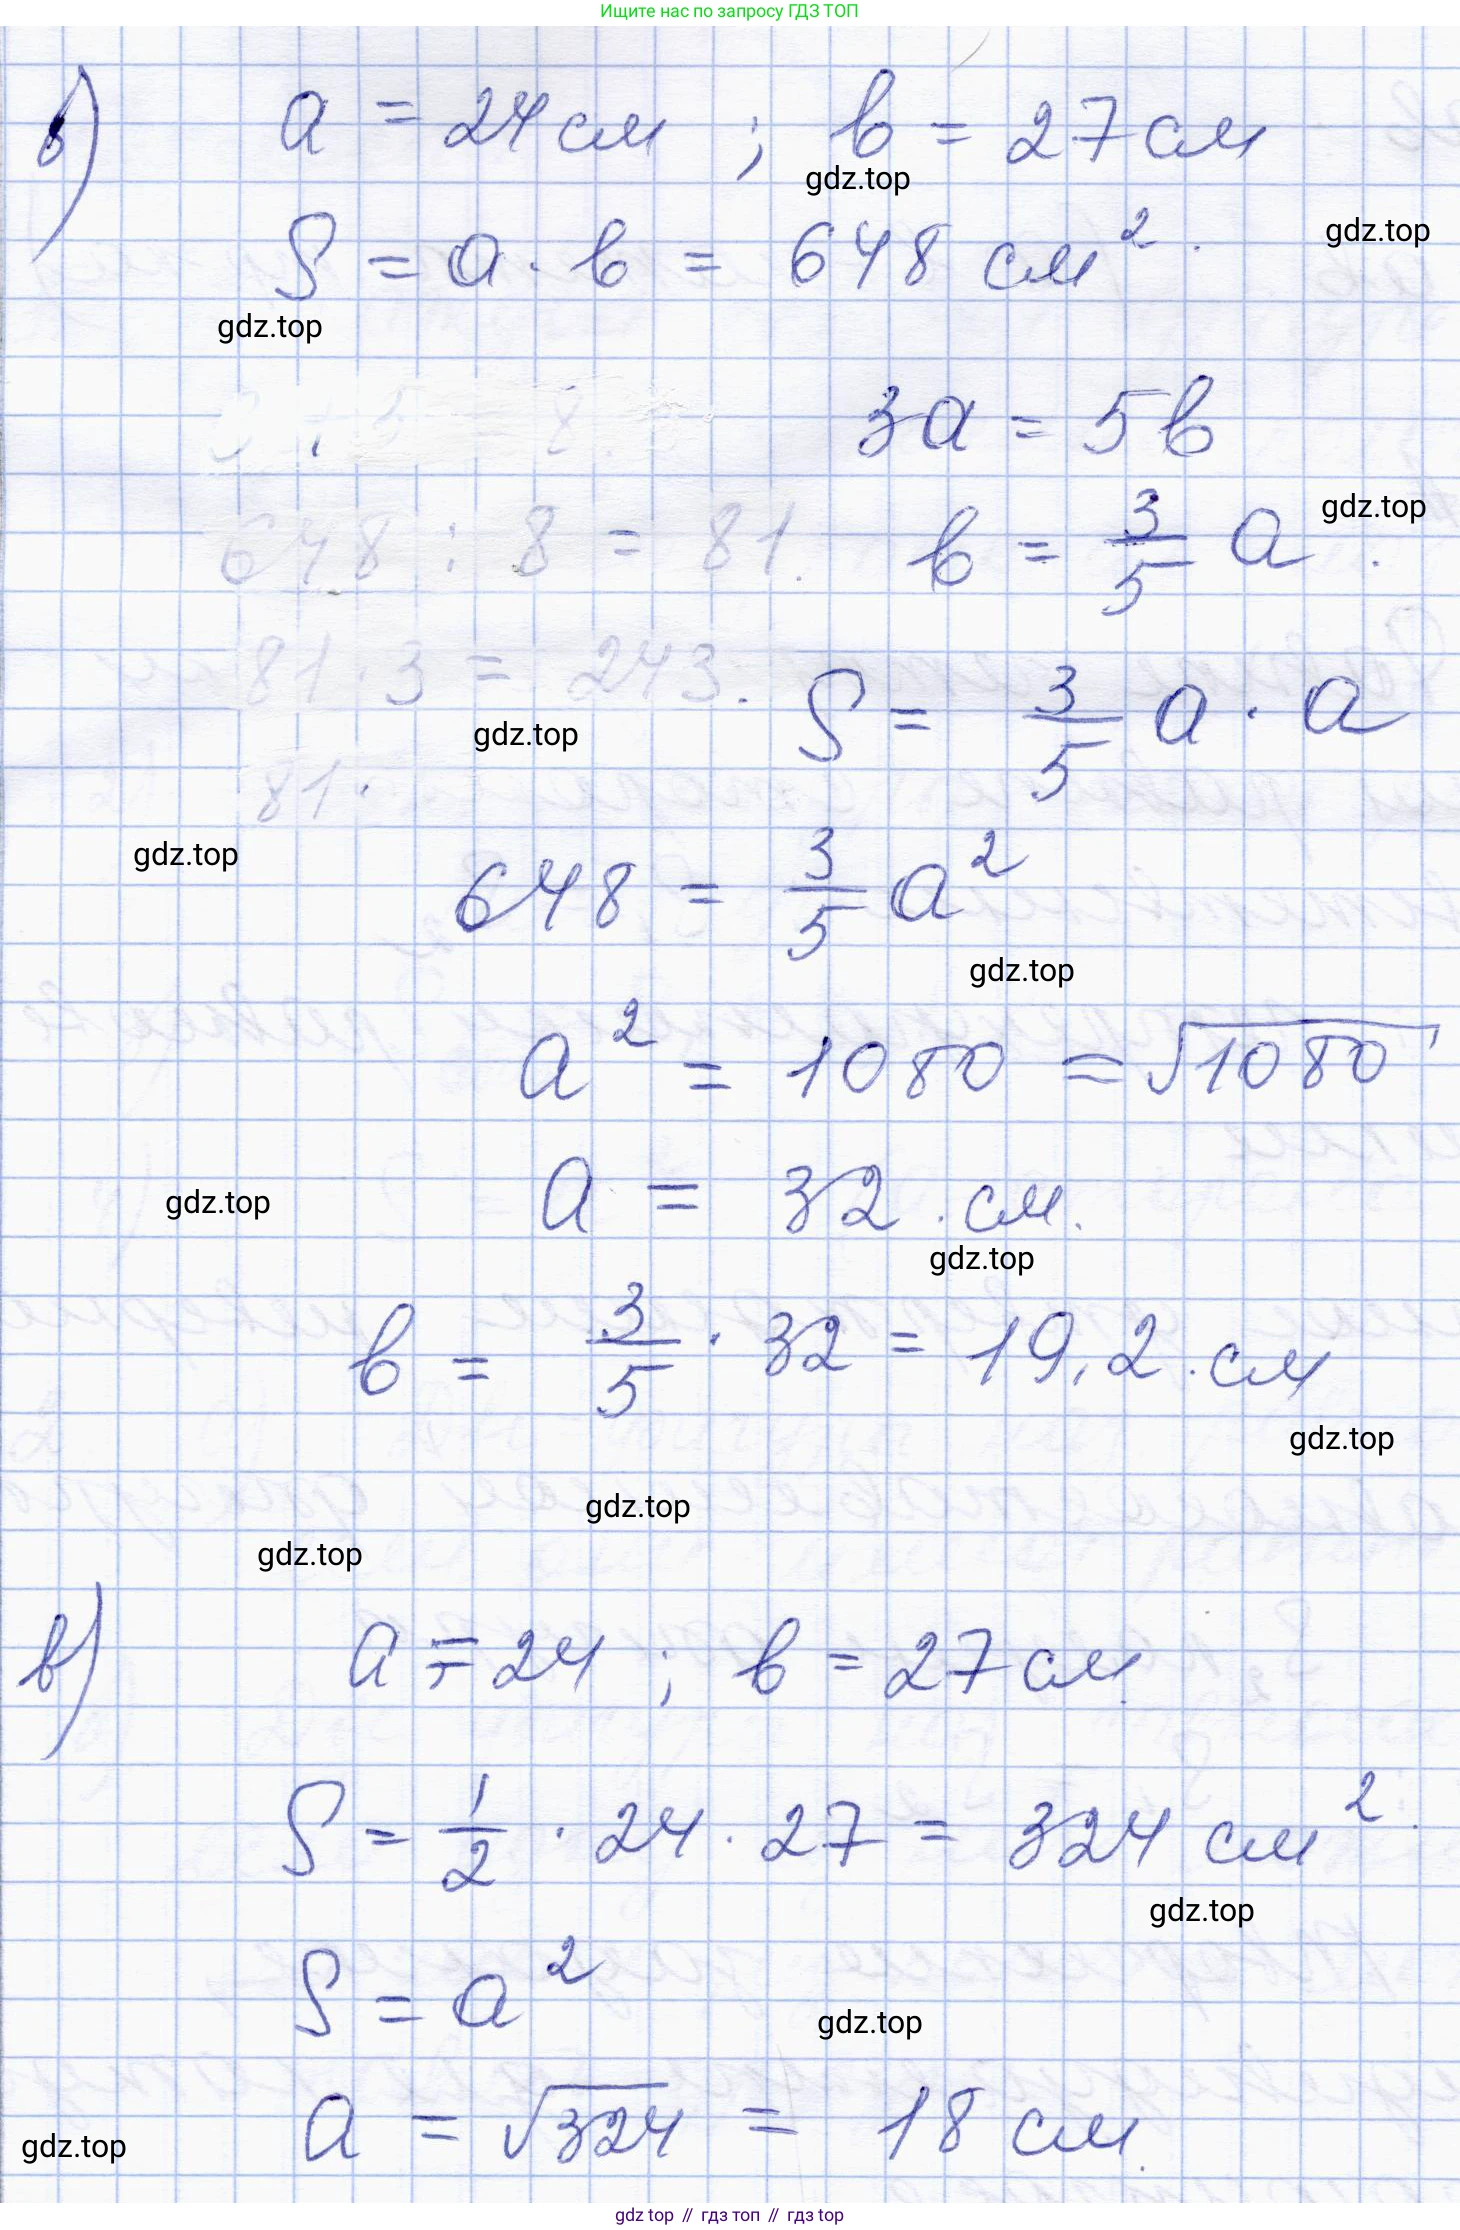 Ищите нас по запросу ГДЗ ТОП
б) a = 24 см ; b = 27 см
gdz.top
S = a · b = 648 см².
gdz.top
gdz.top
3a = 5b
648 : 8 = 81. b = 3/5 a.
gdz.top
81 · 3 = 243. S = 3/5 a · a
gdz.top
81 ·
gdz.top
648 = 3/5 a²
gdz.top
a² = 1080 = √1080
a = 32 . см.
gdz.top
gdz.top
b = 3/5 · 32 = 19,2 . см
gdz.top
gdz.top
gdz.top
в) a = 24 ; b = 27 см.
S = 1/2 · 24 · 27 = 324 см².
gdz.top
S = a²
gdz.top
a = √324 = 18 см.
gdz.top
gdz.top // гдз топ // гдз top